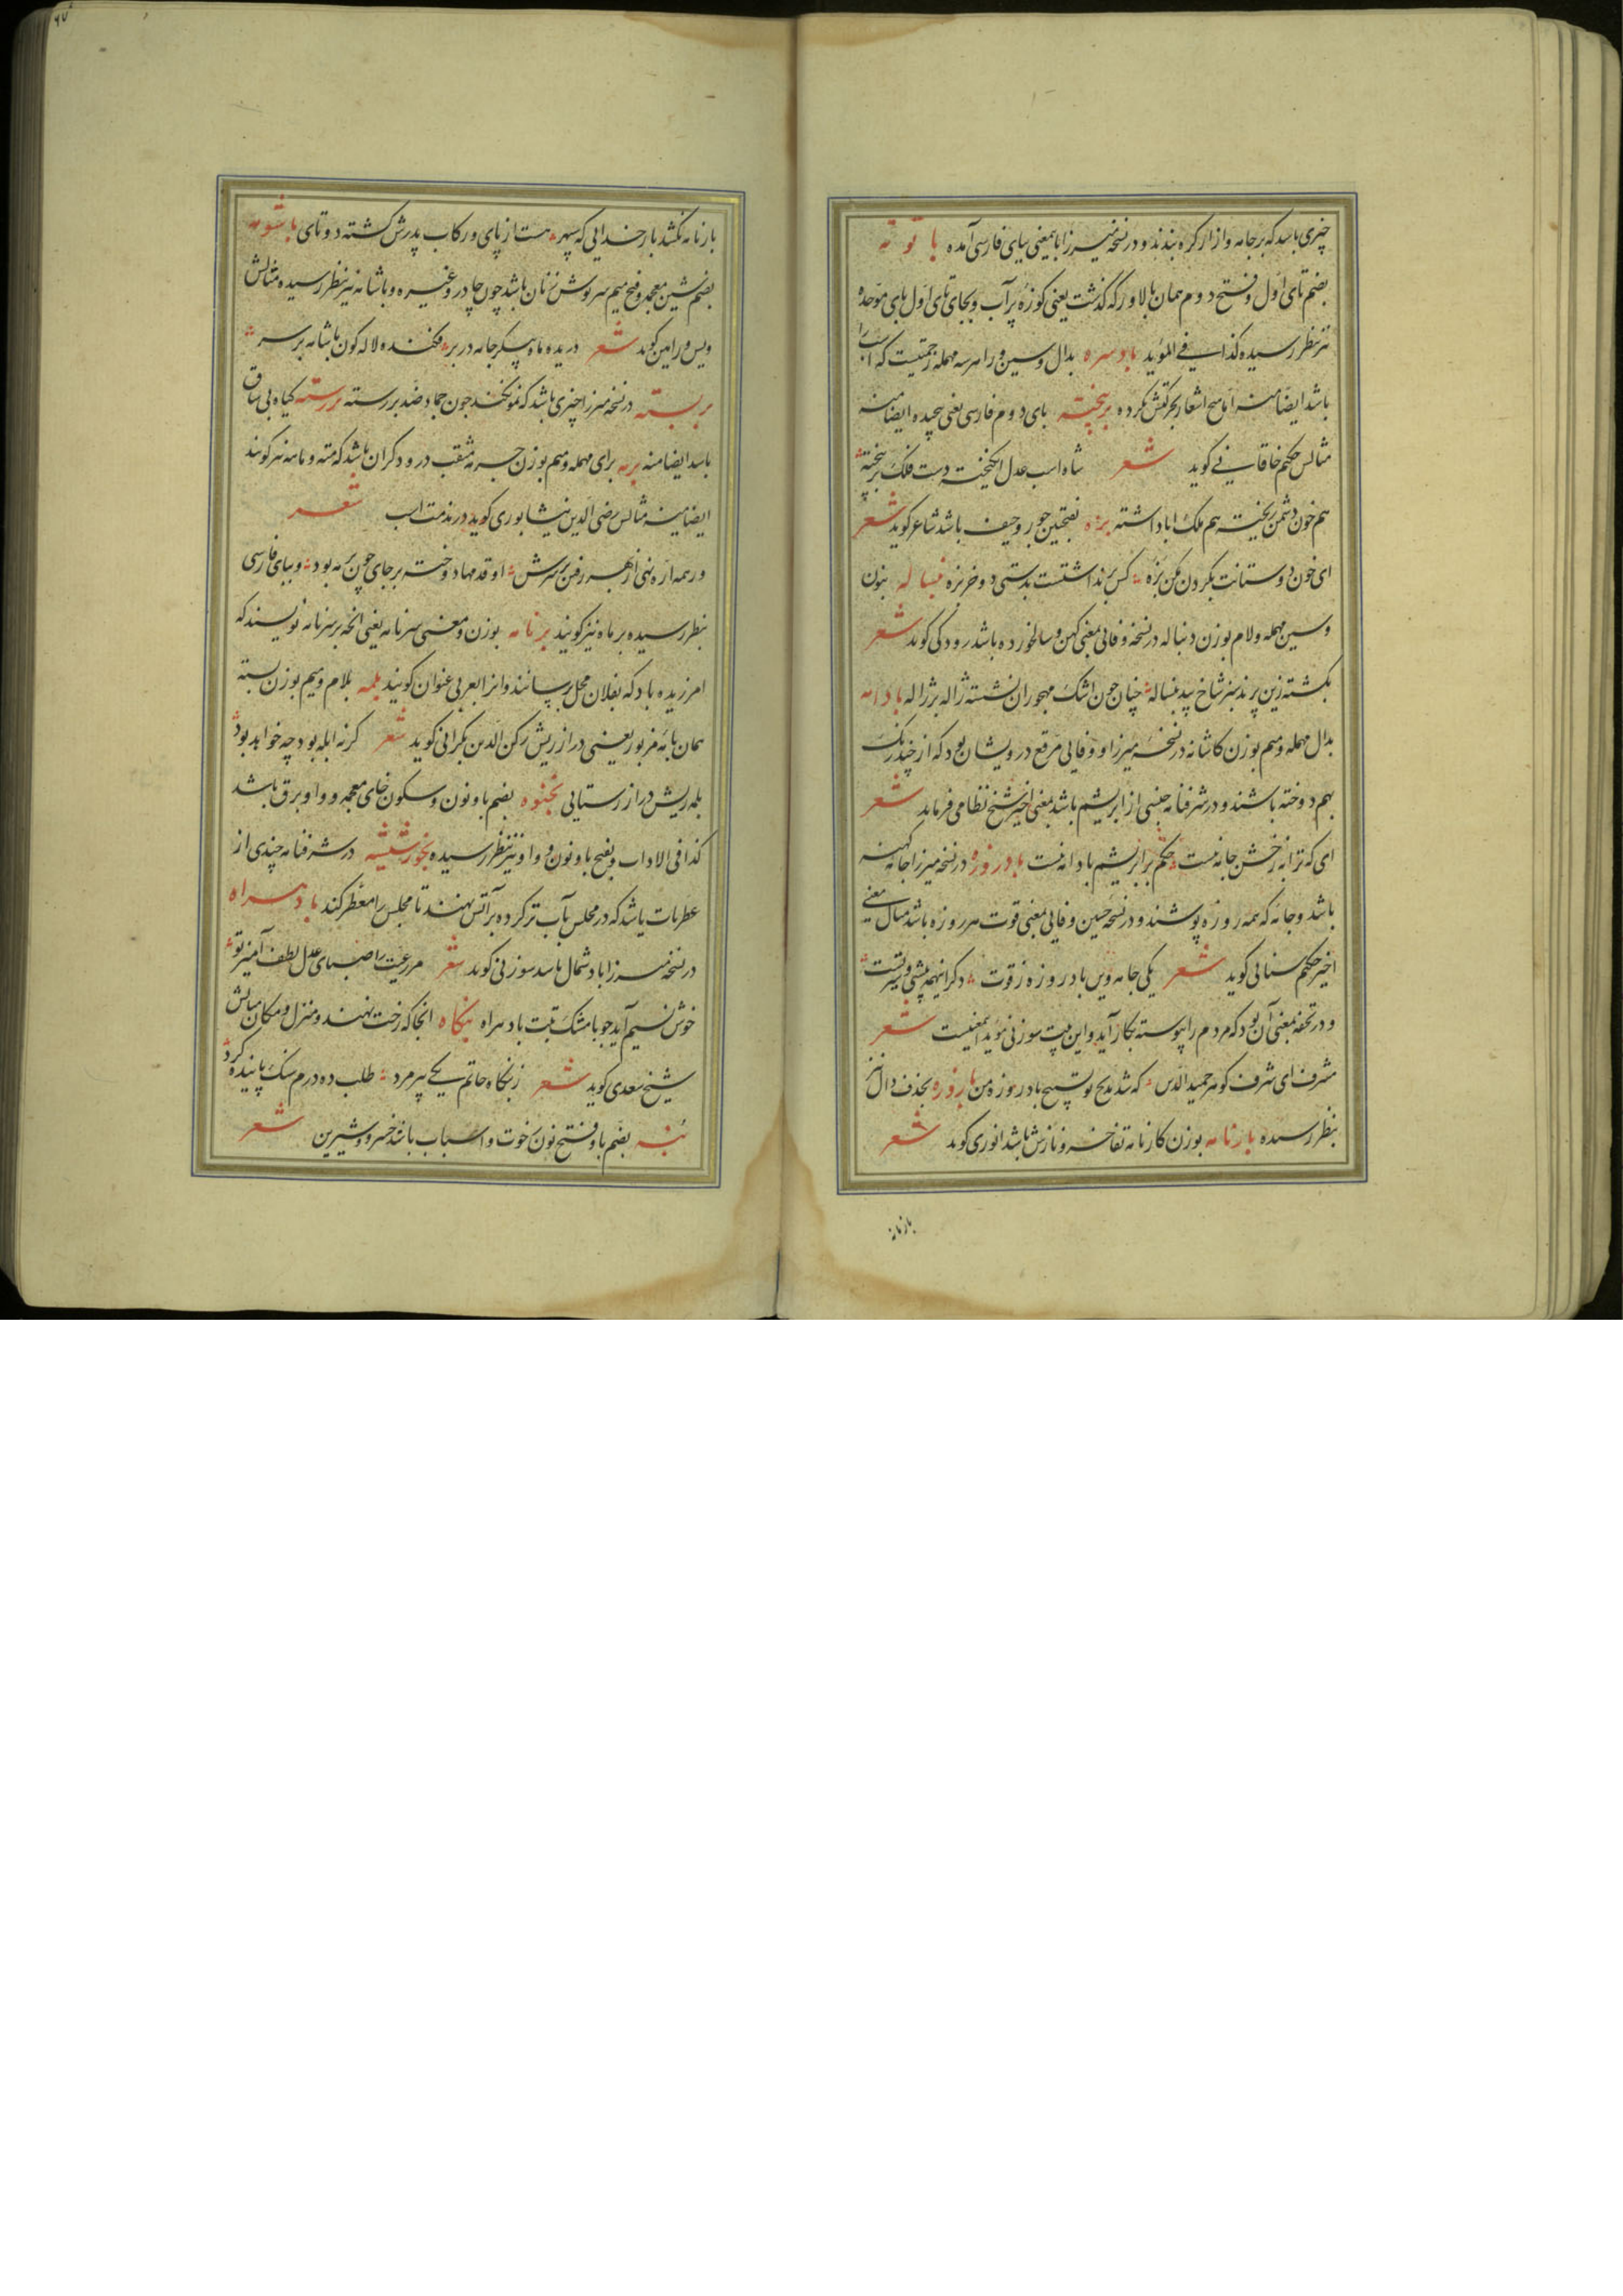 چیزی باشد که بر جامه و ازار کره بندند و در نسخه میرزا باینمعنی بیای فارسی آمده باتوته
بضم تای اول و فتح دوم همان بالاور که گذشت یعنی کوزهٔ پر آب و بجای تای اول بای موحده
نیز بنظر رسیده کذا فی المؤید بادسره بدال و سین و را هر سه مهمله زحمتیست که اسب را
باشد ایضا منه اما هیچ اشعار بحرکتش نکرده برپیخته بای دوم فارسی یعنی پیچیده ایضا منه
مثالش حکیم خاقانی گوید شعر شاه اسب عدل انکیخته دست فلک برپیخته
هم خون دشمن ریخته هم ملک اباد اشته بزه بفتحتین جور و حیف باشد شاعر گوید شعر
ای خون دوستانت بگردن مکن بزه کس برنداشتست بدستی دو خربزه بنساله بنون
و سین مهمله و لام بوزن دنباله در نسخه وفائی بمعنی کهن و سالخورده باشد رودکی گوید شعر
بگشته زین پرند سبز شاخ بید بنساله چنان چون اشک مهجوران نشسته ژاله بر ژاله بادامه
بدال مهمله و میم بوزن کاشانه در نسخهٔ میرزا و وفائی مرقع درویشان بود که از چند رنک
بهم دوخته باشند و در شرفنامه جنسی از ابریشم باشد بمعنی اخیر شیخ نظامی فرماید شعر
ای که ترا به ز خشن جامه نیست حکم بر ابریشم بادامه نیست بادروزه در نسخه میرزا جامه کهنه
باشد و جامه که همه روزه پوشند و در نسخه حسین وفائی بمعنی قوت هر روزه باشد مثال معنی
اخیر حکیم سنائی گوید شعر یکی جامه وین بادروزه ز قوت دکر اینهمه پیشی و برتریست
و در تحفه بمعنی آن بود که مردم را پیوسته بکار آید و این بیت سوزنی مؤید اینمعنیست شعر
مشرف ای شرف کوهر حمید الدین که شد مدیح تو تسبیح بادروزه من باروزه بحذف دال نیز
بنظر رسیده بارنامه بوزن کارنامه تفاخر و نازش باشد انوری گوید شعر
بارنامه
بارنامه نکشد بار خدایی که سپهر هست از پای و رکاب پدرش کشته دوتای باشومه
بضم شین معجمه و فتح میم سرپوش زنان باشد چون چادر و غیره و باشامه نیز بنظر رسیده مثالش
ویس و رامین گوید شعر دریده ماه پیکر جامه در بر فکنده لاله گون باشامه بر سر
بربسته در نسخه میرزا چیزی باشد که نمو نکند چون جماد ضد بررسته بررسته گیاه بی ساق
باشد ایضا منه برمه برای مهمله و میم بوزن چرمه مثقب درودکران باشد که مته و ماهه نیز گویند
ایضا منه مثالش رضی الدین نیشابوری گوید در مذمت اسب شعر
ور همه اره نهی از بهر رفتن بر سرش اوفتد مهاد وخسته بر جای چون برمه بود و ببای فارسی
بنظر رسیده برماه نیز گویند برنامه بوزن و معنی سرنامه یعنی انچه بر سر نامه نویسند که
امرزیده باد که بفلان محل برسانند و انرا بعربی عنوان گویند بلمه بلام و میم بوزن بسته
همان بامهٔ مزبور یعنی دراز ریش رکن الدین بکرانی گوید شعر گر نه ابله بود چه خواهد بود
بلمه ریش دراز رستایی بخنوه بضم با و نون و سکون خای معجمه و واو برق باشد
کذا فی الاداب و بفتح با و نون و واو نیز بنظر رسیده بخورشیشه در شرفنامه چیزی از
عطریات باشد که در مجلس بآب تر کرده بر آتش نهند تا مجلس را معطر کند بادسراه
در نسخه میرزا باد شمال باشد سوزنی گوید شعر مر رعیت را صبای عدل لطف آمیز تو
خوش نسیم آید چو با مشک تبت بادسراه بنکاه انجا که رخت نهند و منزل و مکان مثالش
شیخ سعدی گوید شعر ز بنکاه حاتم یکی پیرمرد طلب ده درم سنک پانید کرد
بنه بضم با و فتح نون رخوت و اسباب باشد خسرو و شیرین شعر